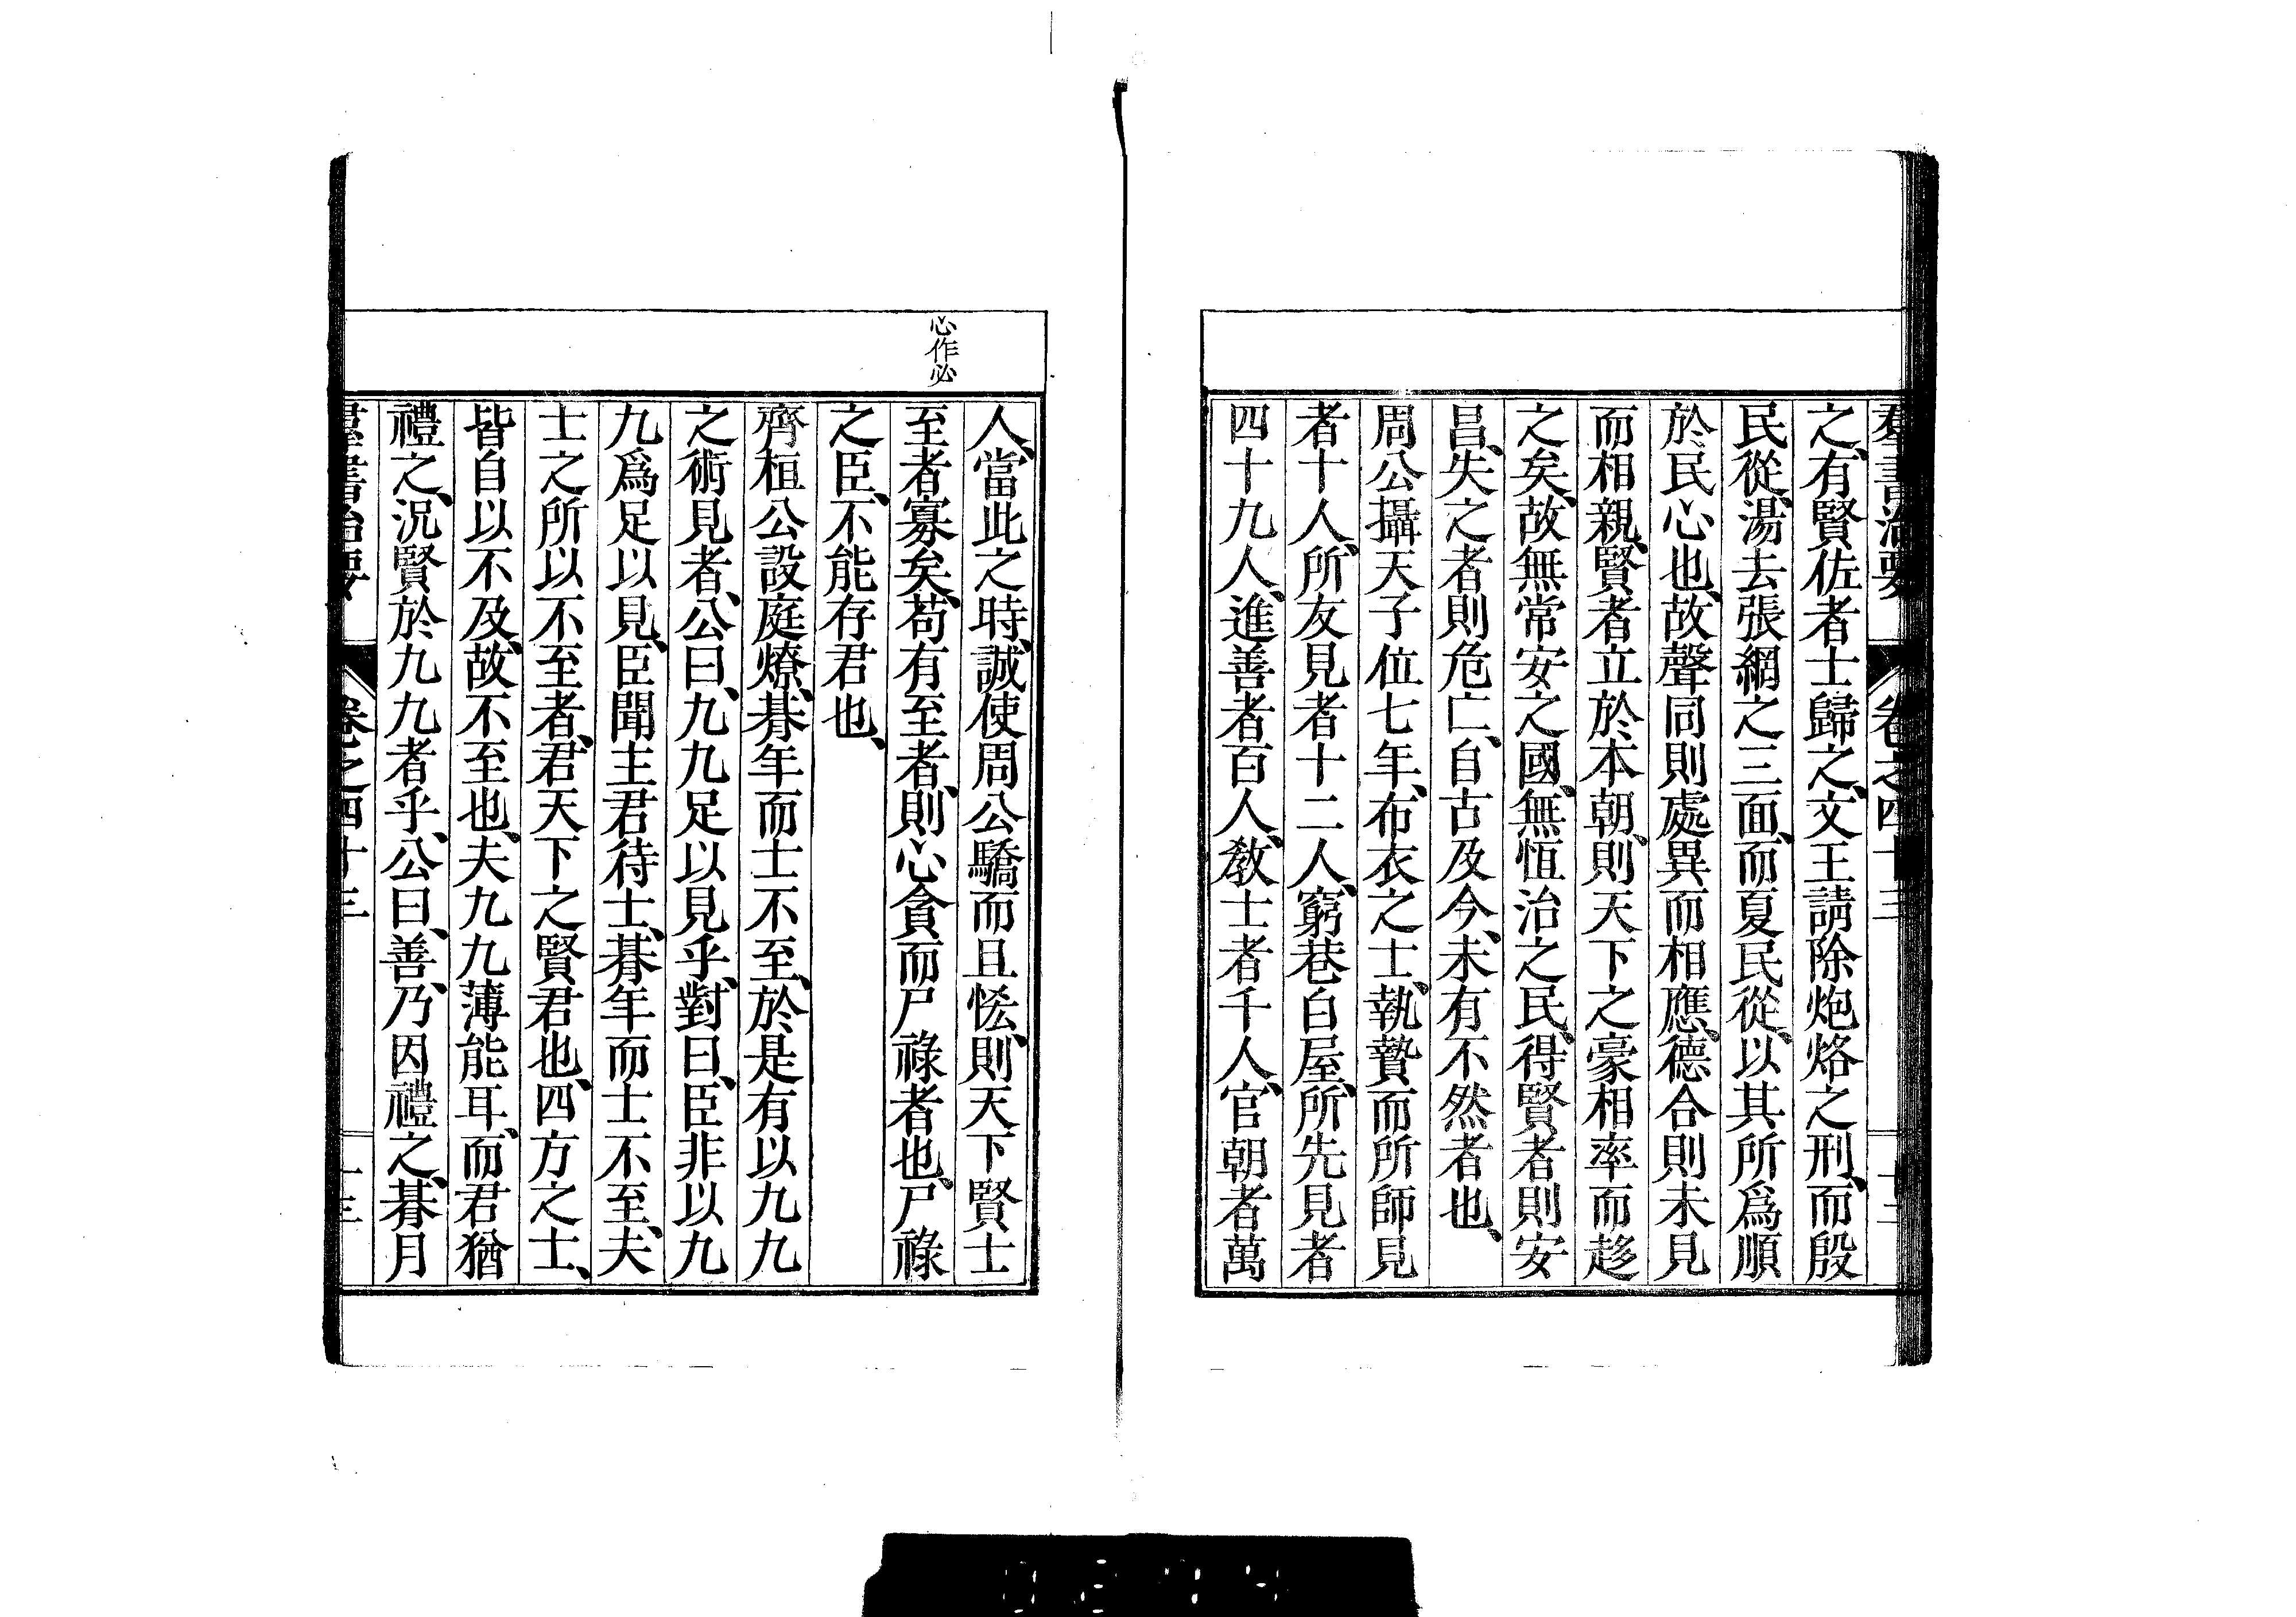 羣書治要 卷之四十三 十二
之、有賢佐者士歸之、文王請除炮烙之刑、而殷
民從、湯去張網之三面、而夏民從、以其所爲順
於民心也、故聲同則處異而相應、德合則未見
而相親、賢者立於本朝、則天下之豪相率而趍
之矣、故無常安之國、無恆治之民、得賢者則安
昌、失之者則危亡、自古及今、未有不然者也、
周公攝天子位七年、布衣之士、執贄而所師見
者十人、所友見者十二人、窮巷白屋、所先見者
四十九人、進善者百人、敎士者千人、官朝者萬
心作必
人、當此之時、誠使周公驕而且恡、則天下賢士
至者寡矣、苟有至者、則心貪而尸祿者也、尸祿
之臣、不能存君也、
齊桓公設庭燎、朞年而士不至、於是有以九九
之術見者、公曰、九九足以見乎、對曰、臣非以九
九爲足以見、臣聞主君待士、朞年而士不至、夫
士之所以不至者、君天下之賢君也、四方之士、
皆自以不及、故不至也、夫九九薄能耳、而君猶
禮之、況賢於九九者乎、公曰、善、乃因禮之、朞月
羣書治要 卷之四十三 十三